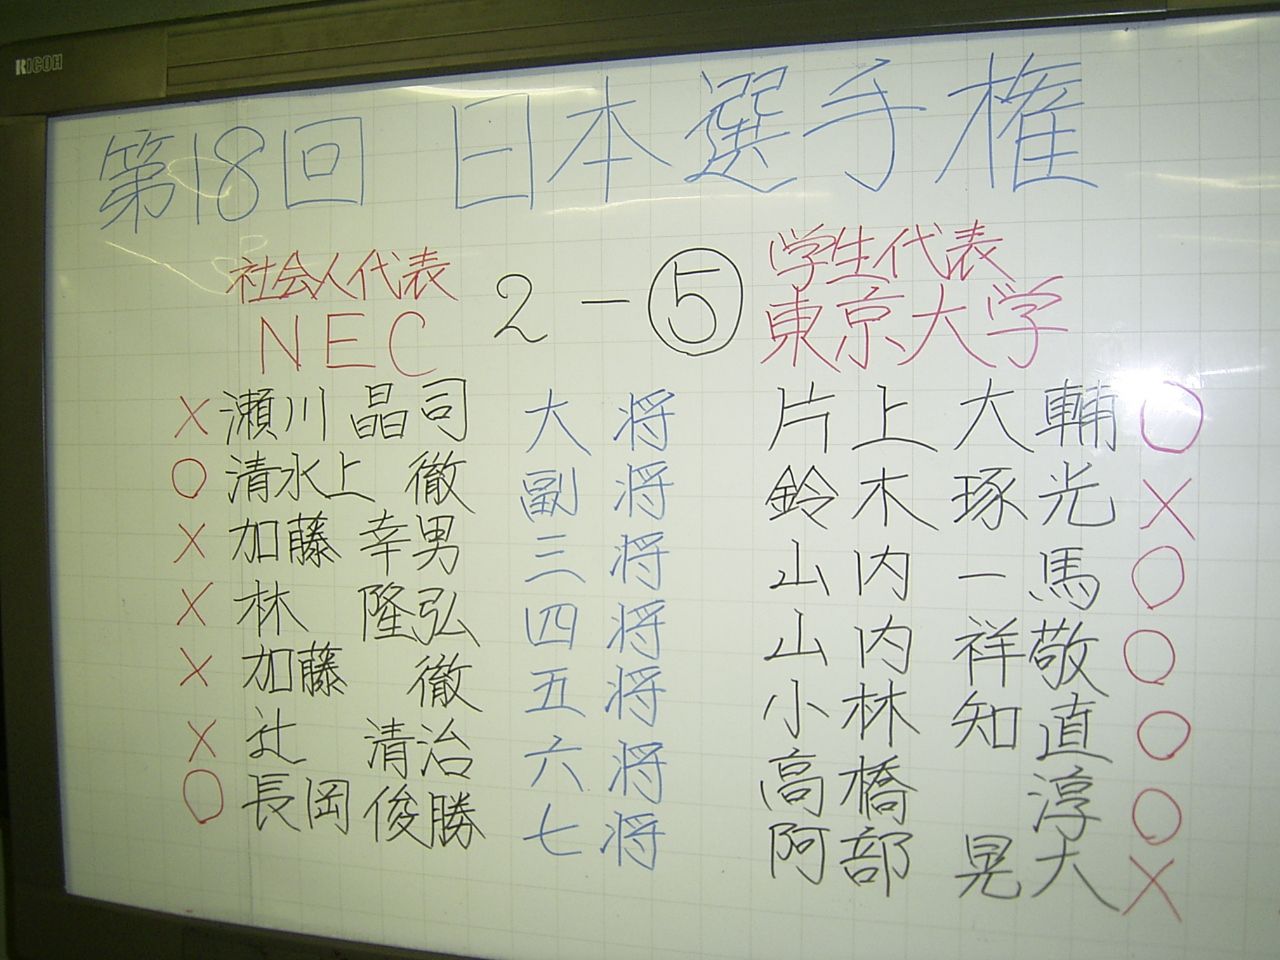 RICOH
第18回 日本選手権
社会人代表 2-⑤ 学生代表
NEC 東京大学
× 瀬川 晶司 大将 片上 大輔 ○
○ 清水上 徹 副将 鈴木 琢光 ×
× 加藤 幸男 三将 山内 一馬 ○
× 林 隆弘 四将 山内 祥敬 ○
× 加藤 徹 五将 小林 知直 ○
× 辻 清治 六将 高橋 淳 ○
○ 長岡 俊勝 七将 阿部 晃大 ×